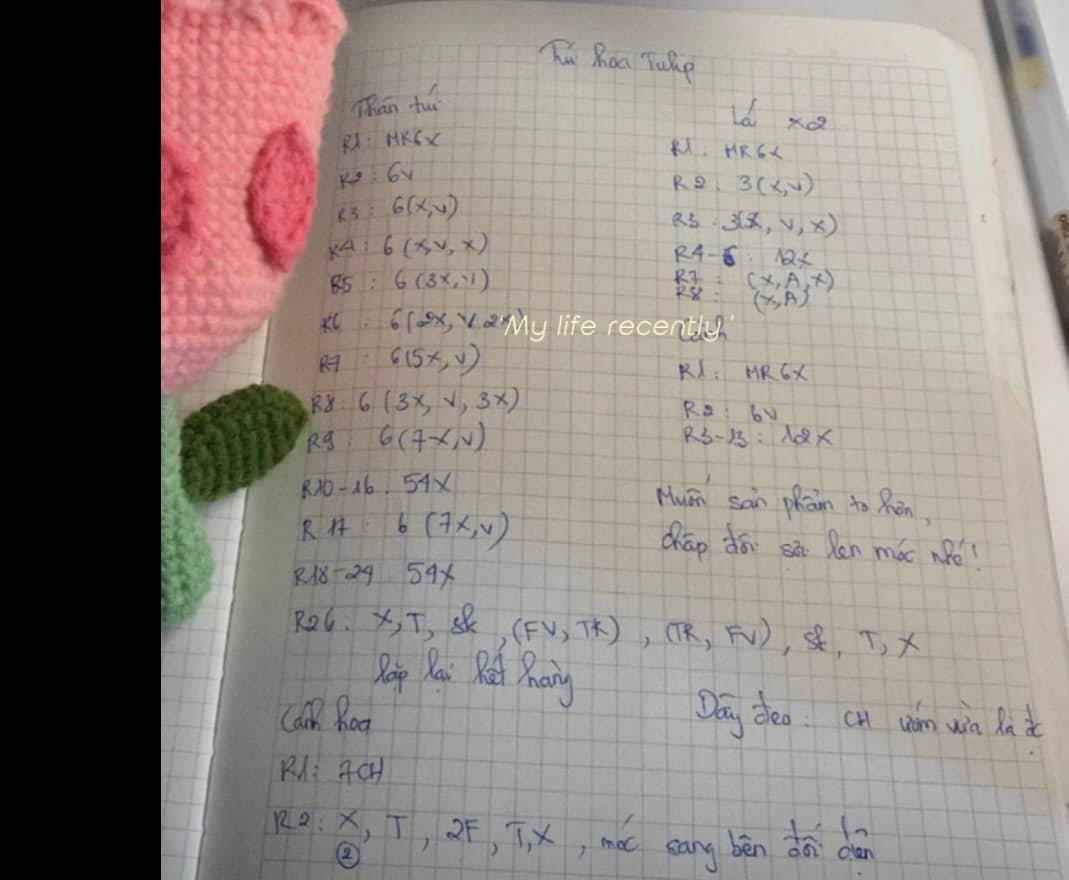 Túi hoa Tulip
Thân túi
R1: MR6X
R2: 6V
R3: 6(X,V)
R4: 6(X,V,X)
R5: 6(3X,V)
R6: 6(2X, V, 2X)
R7: 6(5X,V)
R8: 6(3X, V, 3X)
R9: 6(7X,V)
R10-16: 54X
R17: 6(7X,V)
R18-24 54X
R26: X, T, (FV, TR), (TR, FV), T, X
lặp lại hết hàng
Cánh hoa
R1: 7CH
R2: X, T, 2F, T, X, móc sang bên đối
②
Lá x2
R1: MR6X
R2: 3(X,V)
R3: 3(X, V, X)
R4-6: 12X
R7: (X, A, X)
R8: (X,A)
'My life recently.'
Cành
R1: MR6X
R2: 6V
R3-13: 12X
Muốn sản phẩm to hơn,
chập đôi sợi len móc nhé!
Dây đeo: CH ướm vừa là đc